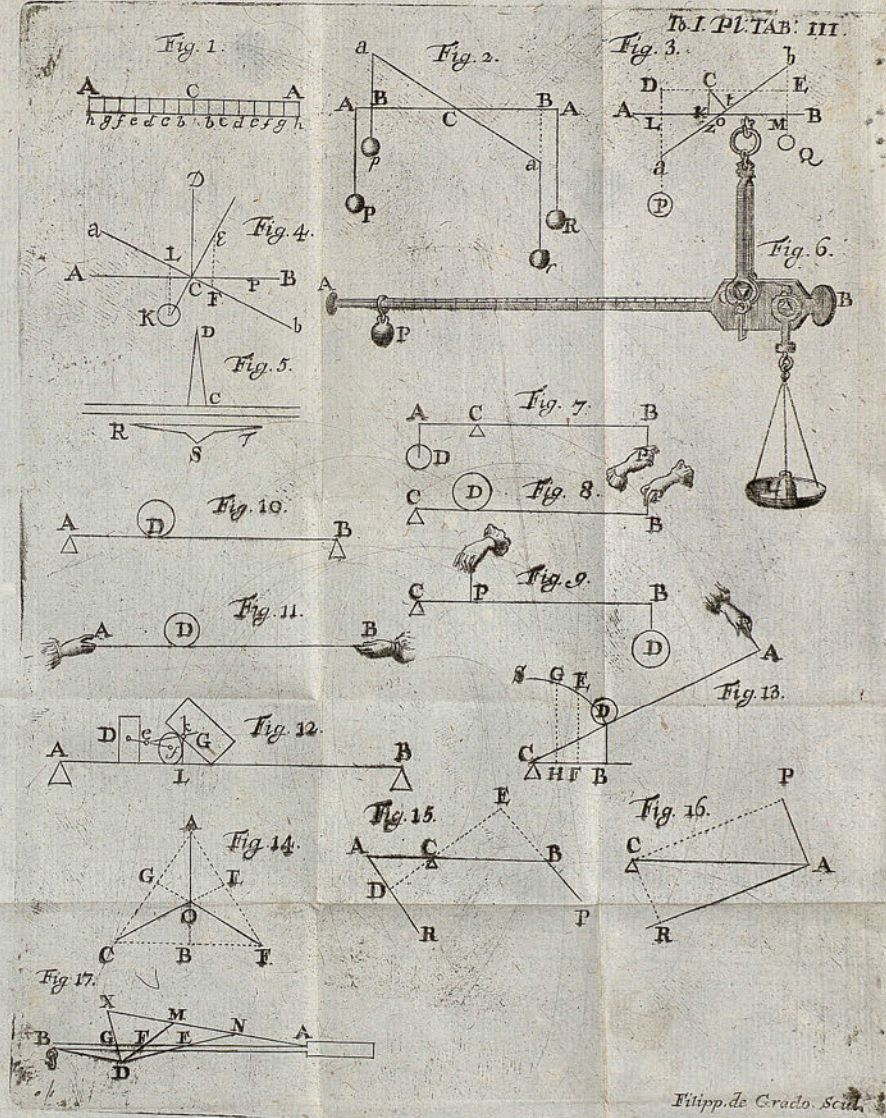 To. I. Pl. TAB: III.
Fig. 1.
A C A
h g f e d c b b c d e f g h
Fig. 2.
a
A B C B A
p a
P R
r
Fig. 3.
b
D C E
A L K O M B
a Q
P
D
a Fig. 4.
L E
A C F P B
K b
Fig. 5.
D
C
R S T
Fig. 6.
A B
P
4
Fig. 7.
A C B
D P
Fig. 8.
C D B
Fig. 9.
C P B
D
Fig. 10.
A D B
Fig. 11.
A D B
Fig. 12.
A D e f k G B
L
Fig. 13.
S G E D A
C H F B
Fig. 14.
A
G E
O
C B F
Fig. 15.
E
A C B
D
R P
Fig. 16.
P
C A
R
Fig. 17.
X M N
B G F E A
D
Filipp. de Grado. Scul.